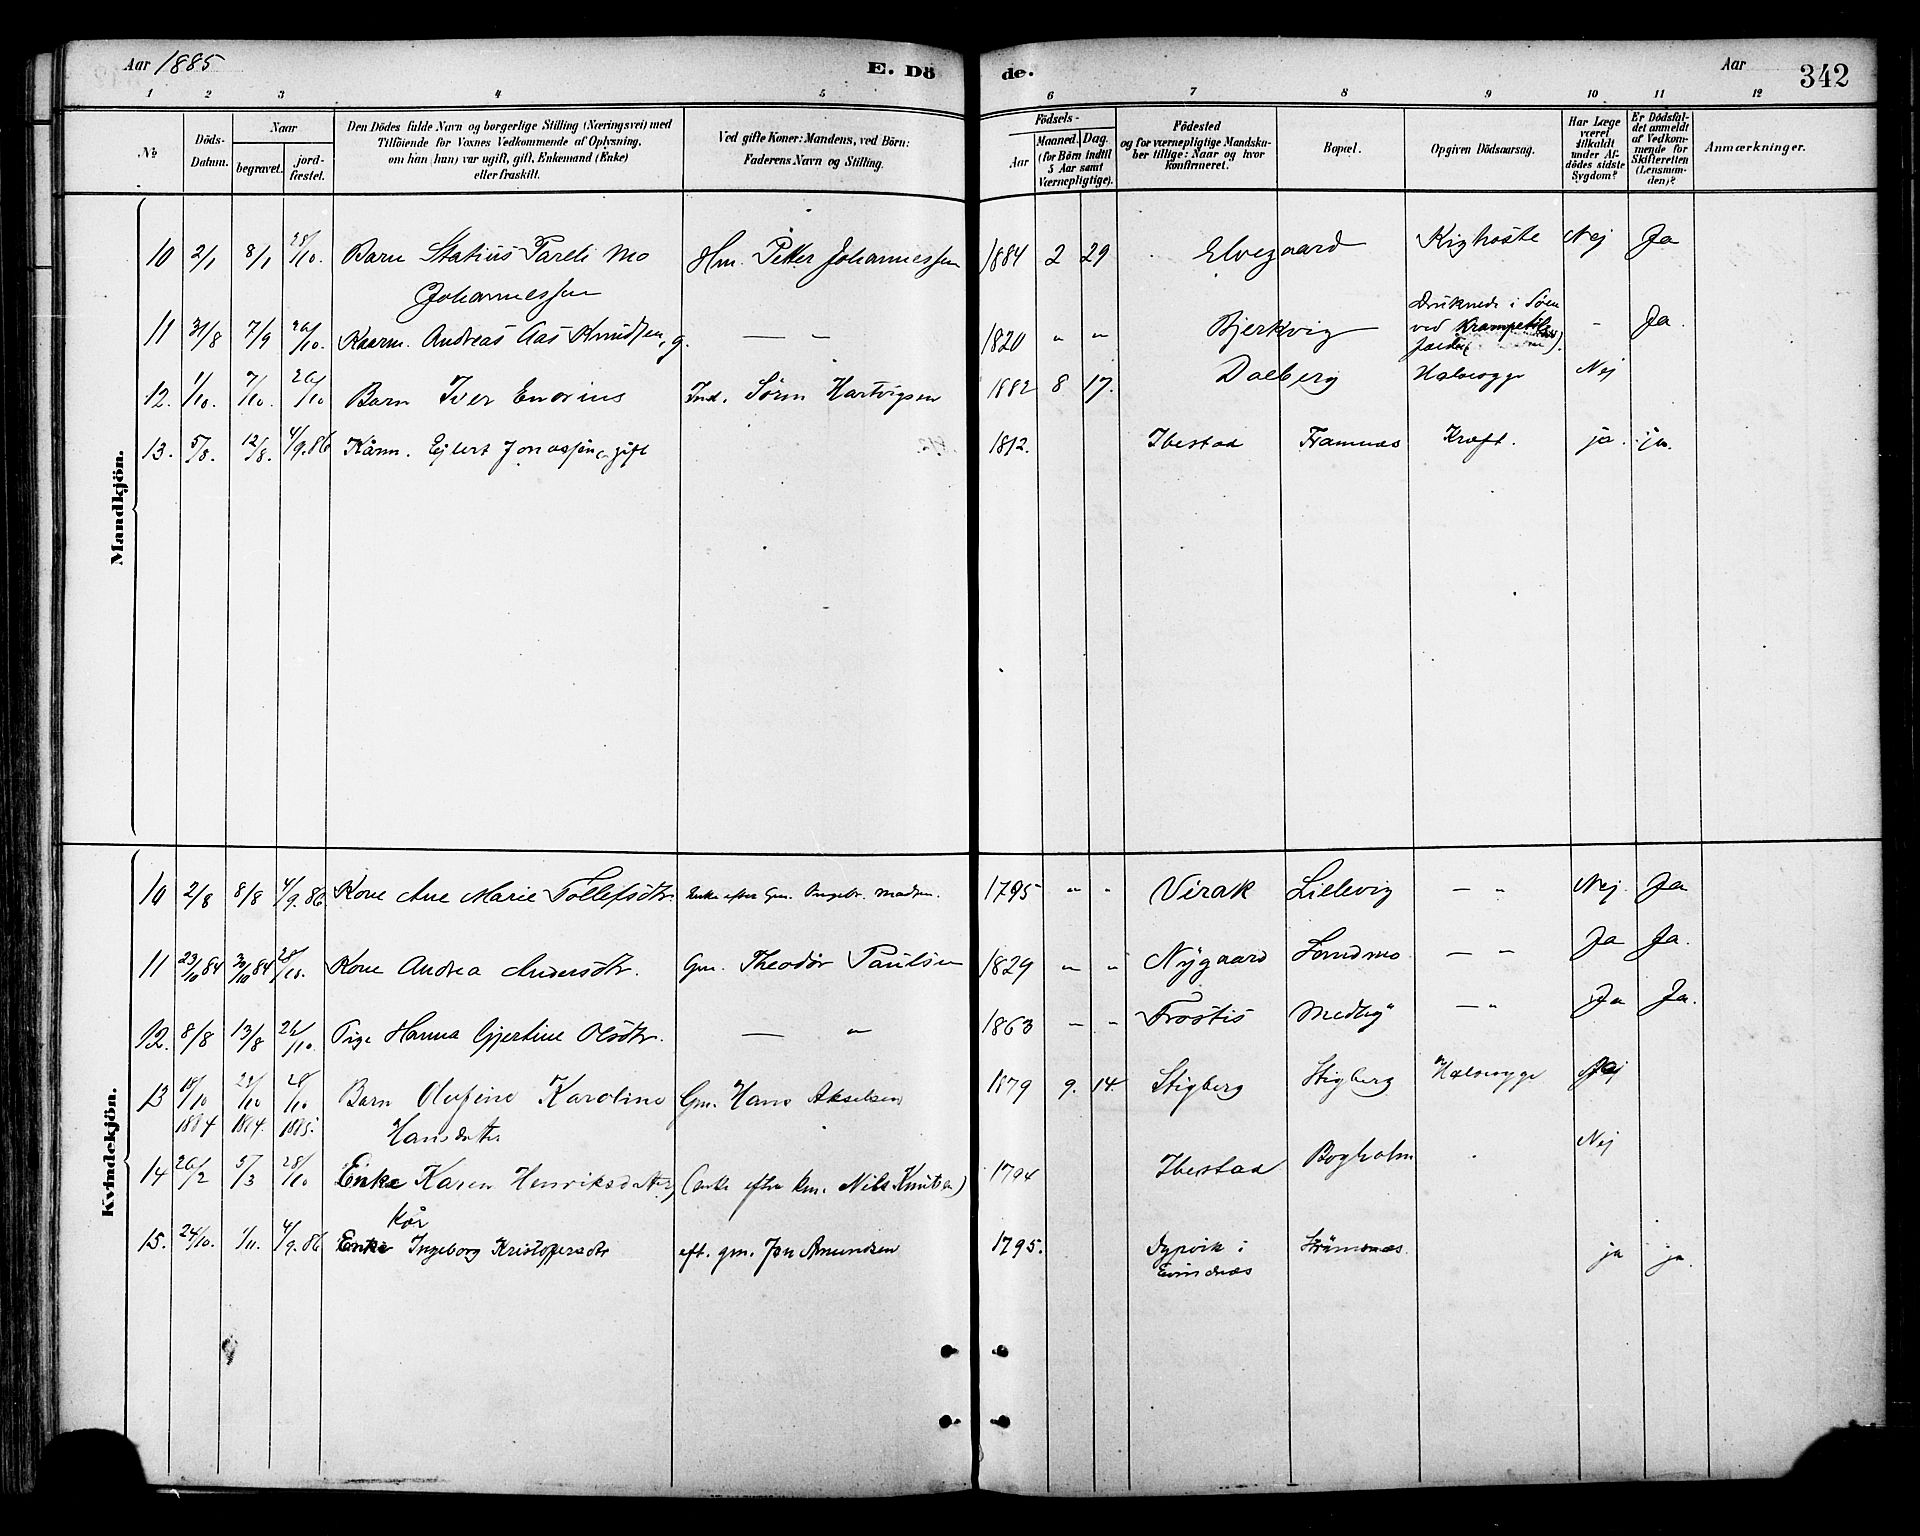 Aar 1885
E. Dö de.
Aar
342
1 2 3 4 5 6 7 8 9 10 11 12
No
Döds-Datum.
Naar
begravet.
jord-fæstet.
Den Dödes fulde Navn og borgerlige Stilling (Næringsvei) med
Tilföiende for Voxnes Vedkommende af Oplysning,
om han (hun) var ugift, gift, Enkemand (Enke)
eller fraskilt.
Ved gifte Koner: Mandens, ved Börn:
Faderens Navn og Stilling.
Födsels-
Aar
Maaned. Dag.
(for Börn indtil
5 Aar samt
Værnepligtige).
Födested
og for værnepligtige Mandska-
ber tillige: Naar og hvor
konfirmeret.
Bopæl.
Opgiven Dödsaarsag.
Har Læge
været
tilkaldt
under Af-
dödes sidste
Sygdom?
Er Dödsfal-
det anmeldt
af Vedkom-
mende for
Skifteretten
(Lensman-
den)?
Anmærkninger.
Mandkjön.
10 2/1 8/1 28/10. Barn Statius Pareli Mo Hm. Petter Johannessen 1884 2 29 Elvegaard Kighoste Nej Ja
Johannessen
11 31/8 7/9 20/10. Kaarm. Andreas Aas Knudsen, g. — „ 1820 „ „ Bjerkvig Druknede i Søen
ved - Ja.
12. 1/10. 7/10. 20/10 Barn Iver Enorius Ind. Sørin Hartvigsen 1882 8 17. Dalberg Halsesyge Nej
13. 5/8. 12/8. 4/9.86 Kårm. Ejlert Jonassen, gift 1812. Ibestad Framnæs Kræft. ja. ja.
Kvindekjön.
10 2/8 8/8 4/9.86 Kone Ane Marie Tollefsdtr. Enke efter Gm. Ingebr. Madsen. 1795 „ „ Virak Lillevig — „ Nej. Ja
11 23/10 84 30/10 84 28/10. Kone Andrea Andersdtr. Gm. Theodør Paulsen 1829 „ „ Nygaard Sandmo — „ Ja Ja.
12. 8/8 13/8 21/10. Pige Hanna Gjertine Olsdtr. — „ 1863 „ „ Trostis Medby — „ Ja Ja.
13 18/10 22/10 28/10 Barn Olufine Karoline Gm. Hans Akselsen 1879 9. 14. Stigberg Stigberg Halsesyge
1884 1884. 1885. Hansdatter
14 20/2 5/3 28/10 Enke Karen Henriksdatter, (enke efter km. Nils Knutsen) 1794 Ibestad Bogholm Nej
Kår
15. 24/10. 1/11. 4/9.86 Enke Ingeborg Kristoffersdtr eft. gm. Jon Amundsen 1795. Dypvik i
Evindnæs Strömsnæs. ja ja.